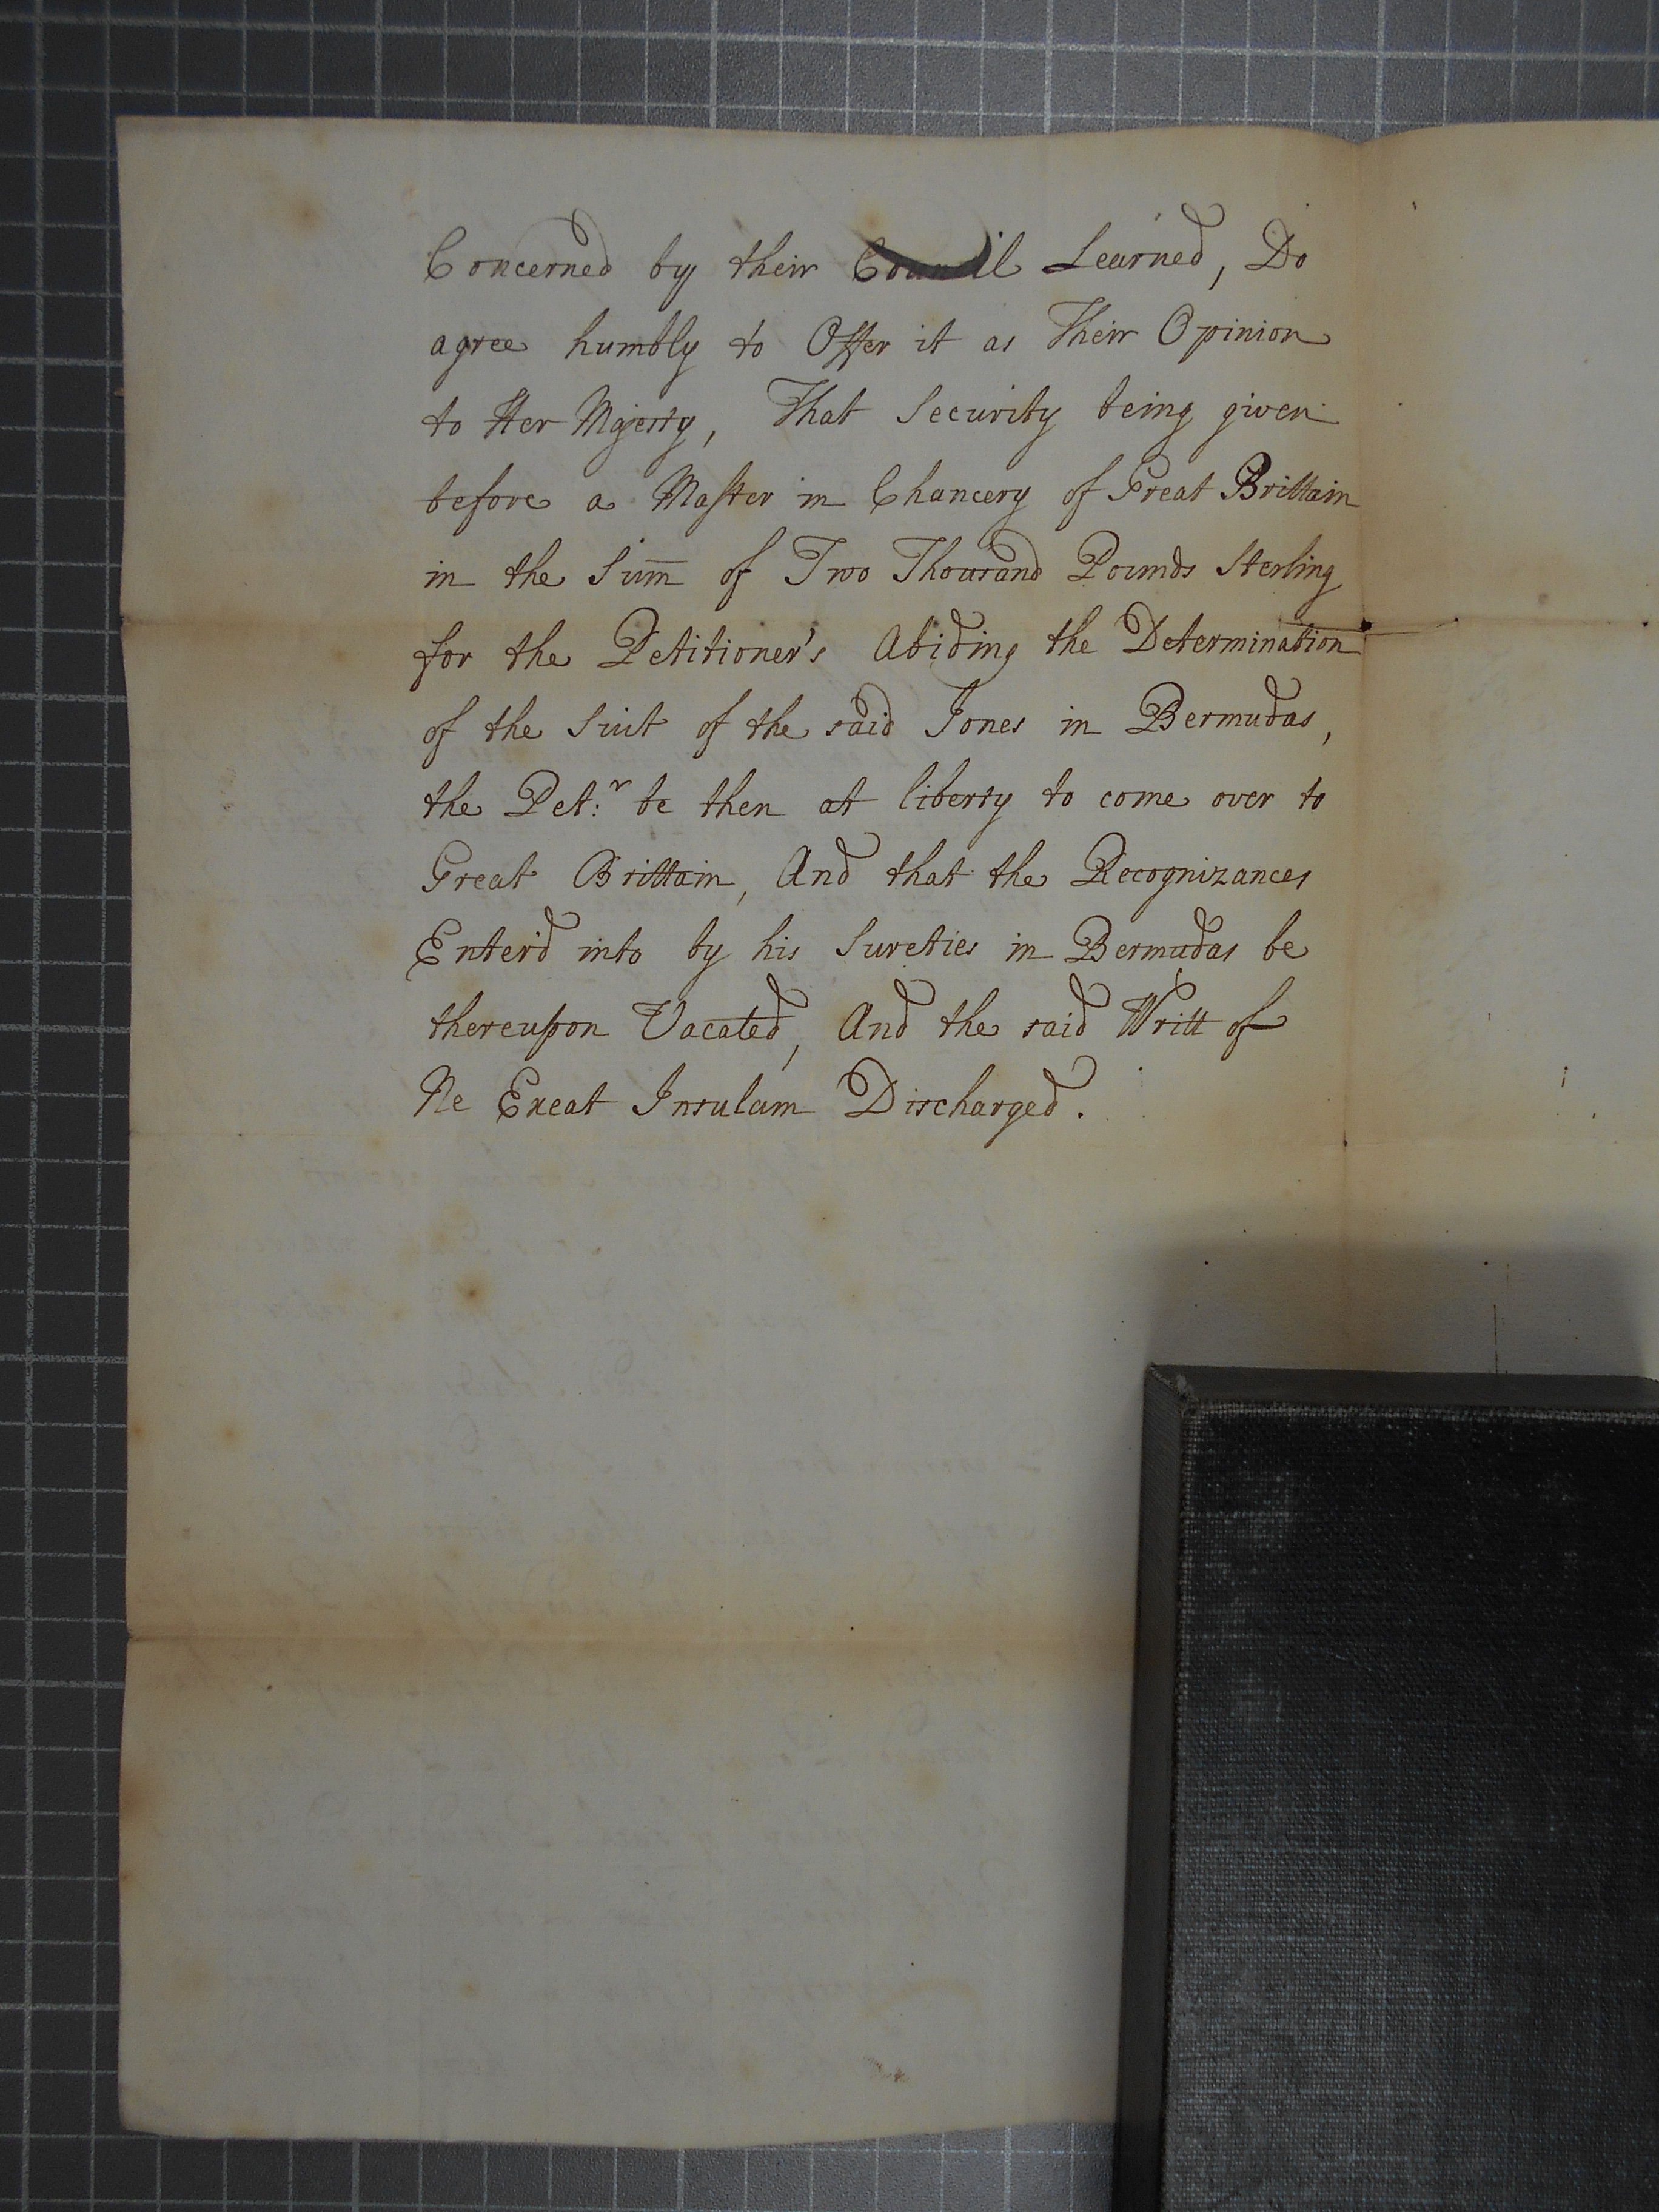 Concerned by their Council Learned, Do
agree humbly to Offer it as Their Opinion
to Her Majesty, That Security being given
before a Master in Chancery of Great Brittain
in the Sum̅ of Two Thousand Pounds Sterling
for the Petitioner's Abiding the Determination
of the Suit of the said Jones in Bermudas,
the Pet:ʳ be then at liberty to come over to
Great Brittain, And that the Recognizances
Enter'd into by his Sureties in Bermudas be
thereupon Vacated, And the said Writt of
Ne Exeat Insulam Discharged.